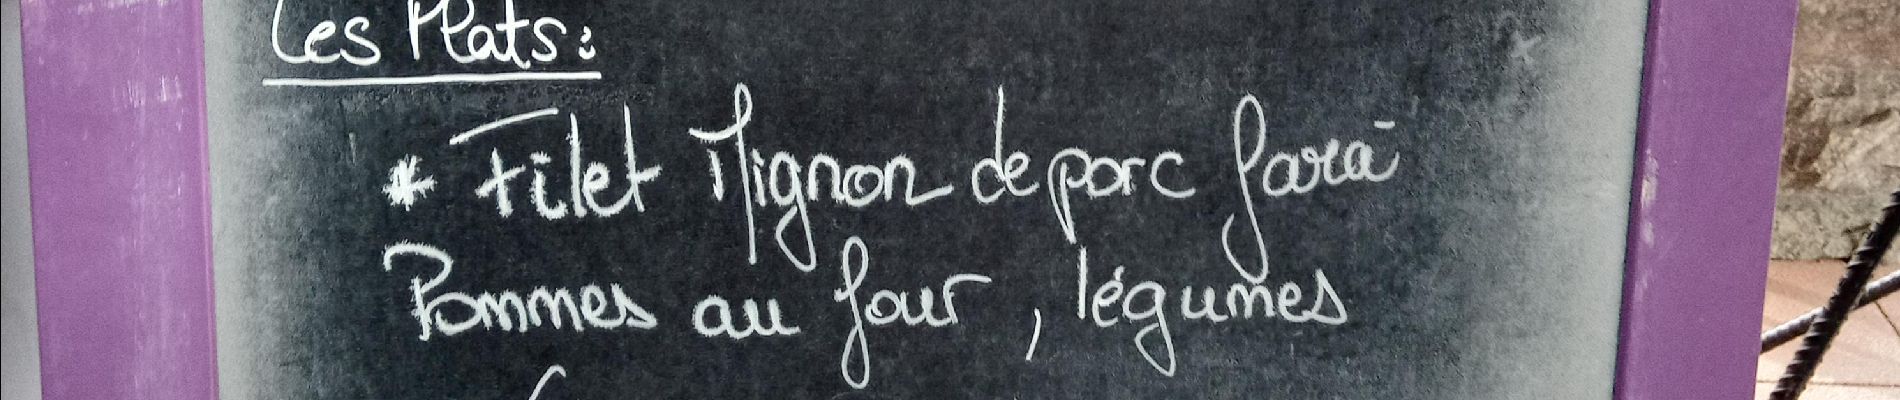 Les Plats:
* Filet Mignon de porc
Pommes au four, légumes